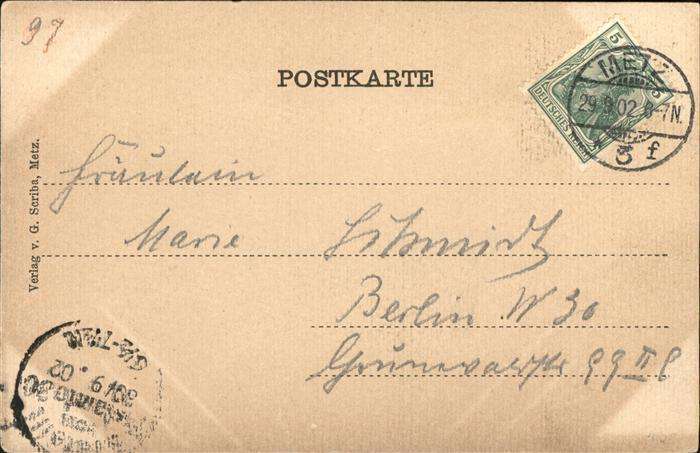 97
POSTKARTE
5 5
DEUTSCHES REICH
METZ
29.9.02 6-7N.
* 3 f
Verlag v. G. Scriba, Metz.
Fräulein
Marie Schmidt
Berlin W 30
Grunewaldstr 99 II
6¼-7½N.
30/9.02